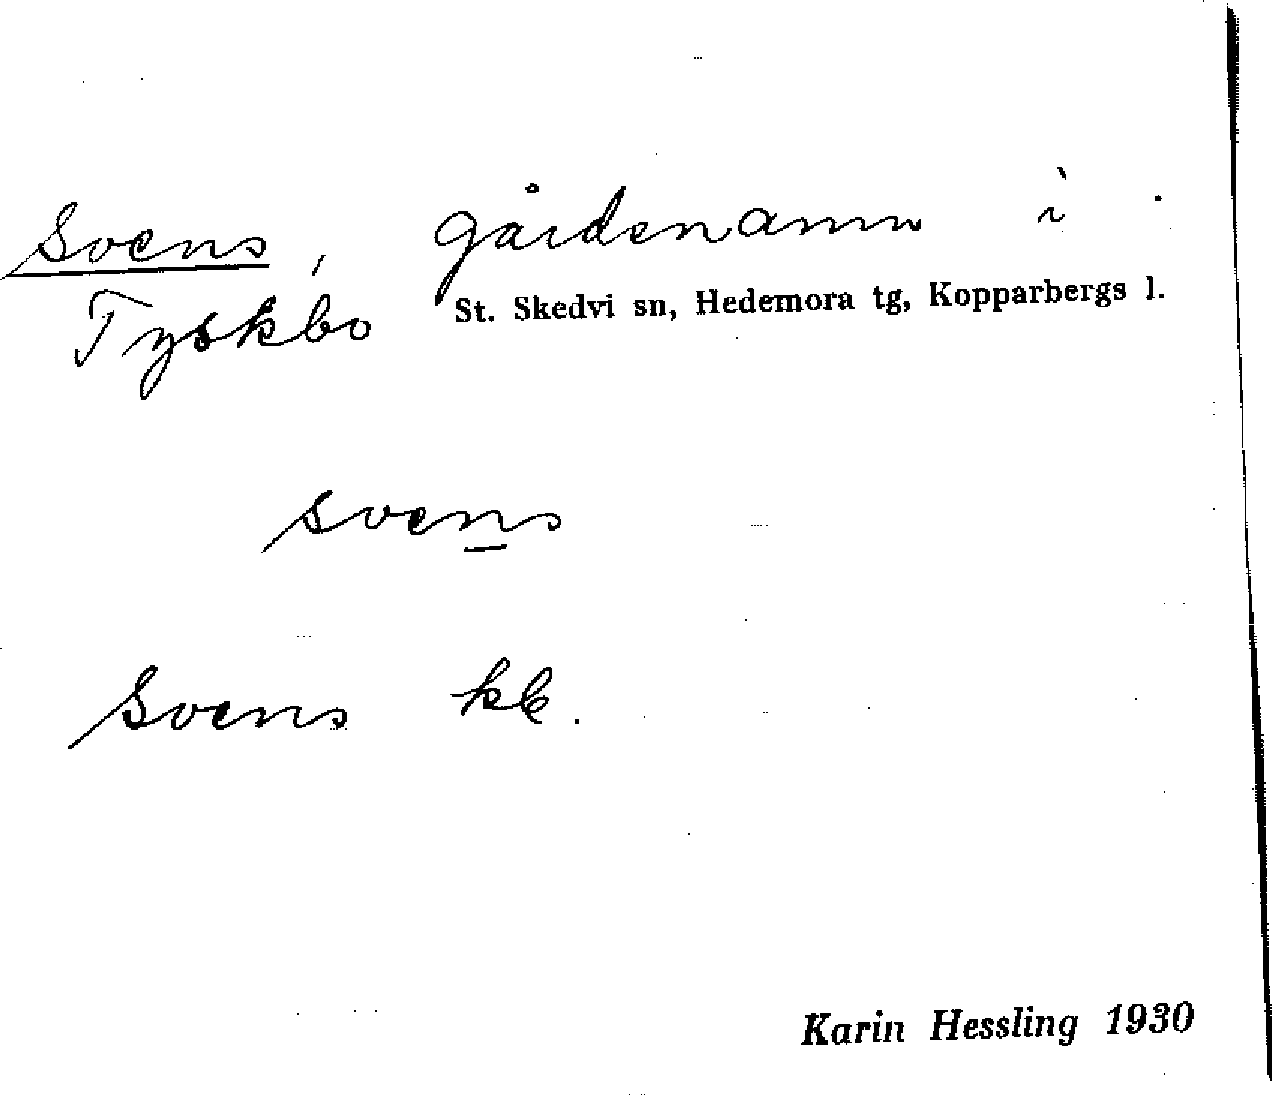 Svens, gårdsnamn i
Tyskbo St. Skedvi sn, Hedemora tg, Kopparbergs l.
svens
Svens kb.
Karin Hessling 1930